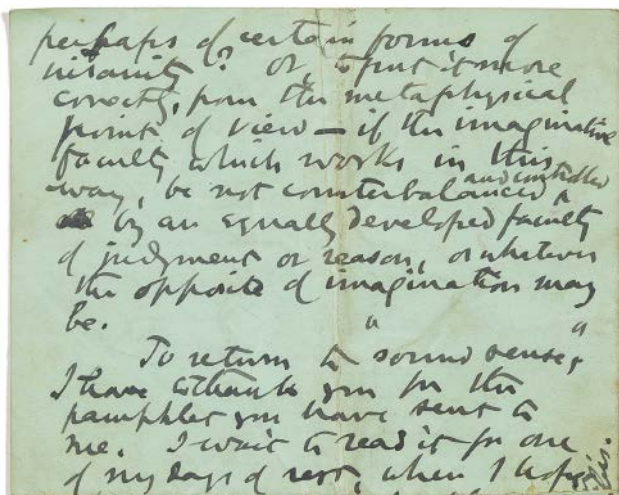 perhaps of certain forms of
insanity? Or, to put it more
correctly, from the metaphysical
point of view — if the imaginative
faculty which works in this
way, be not counterbalanced and controlled
by an equally developed faculty
of judgment or reason, or whatever
the opposite of imagination may
be.
To return to "sound sense",
I have to thank you for the
pamphlet you have sent to
me. I wait to read it for one
of my days of rest, when I hope